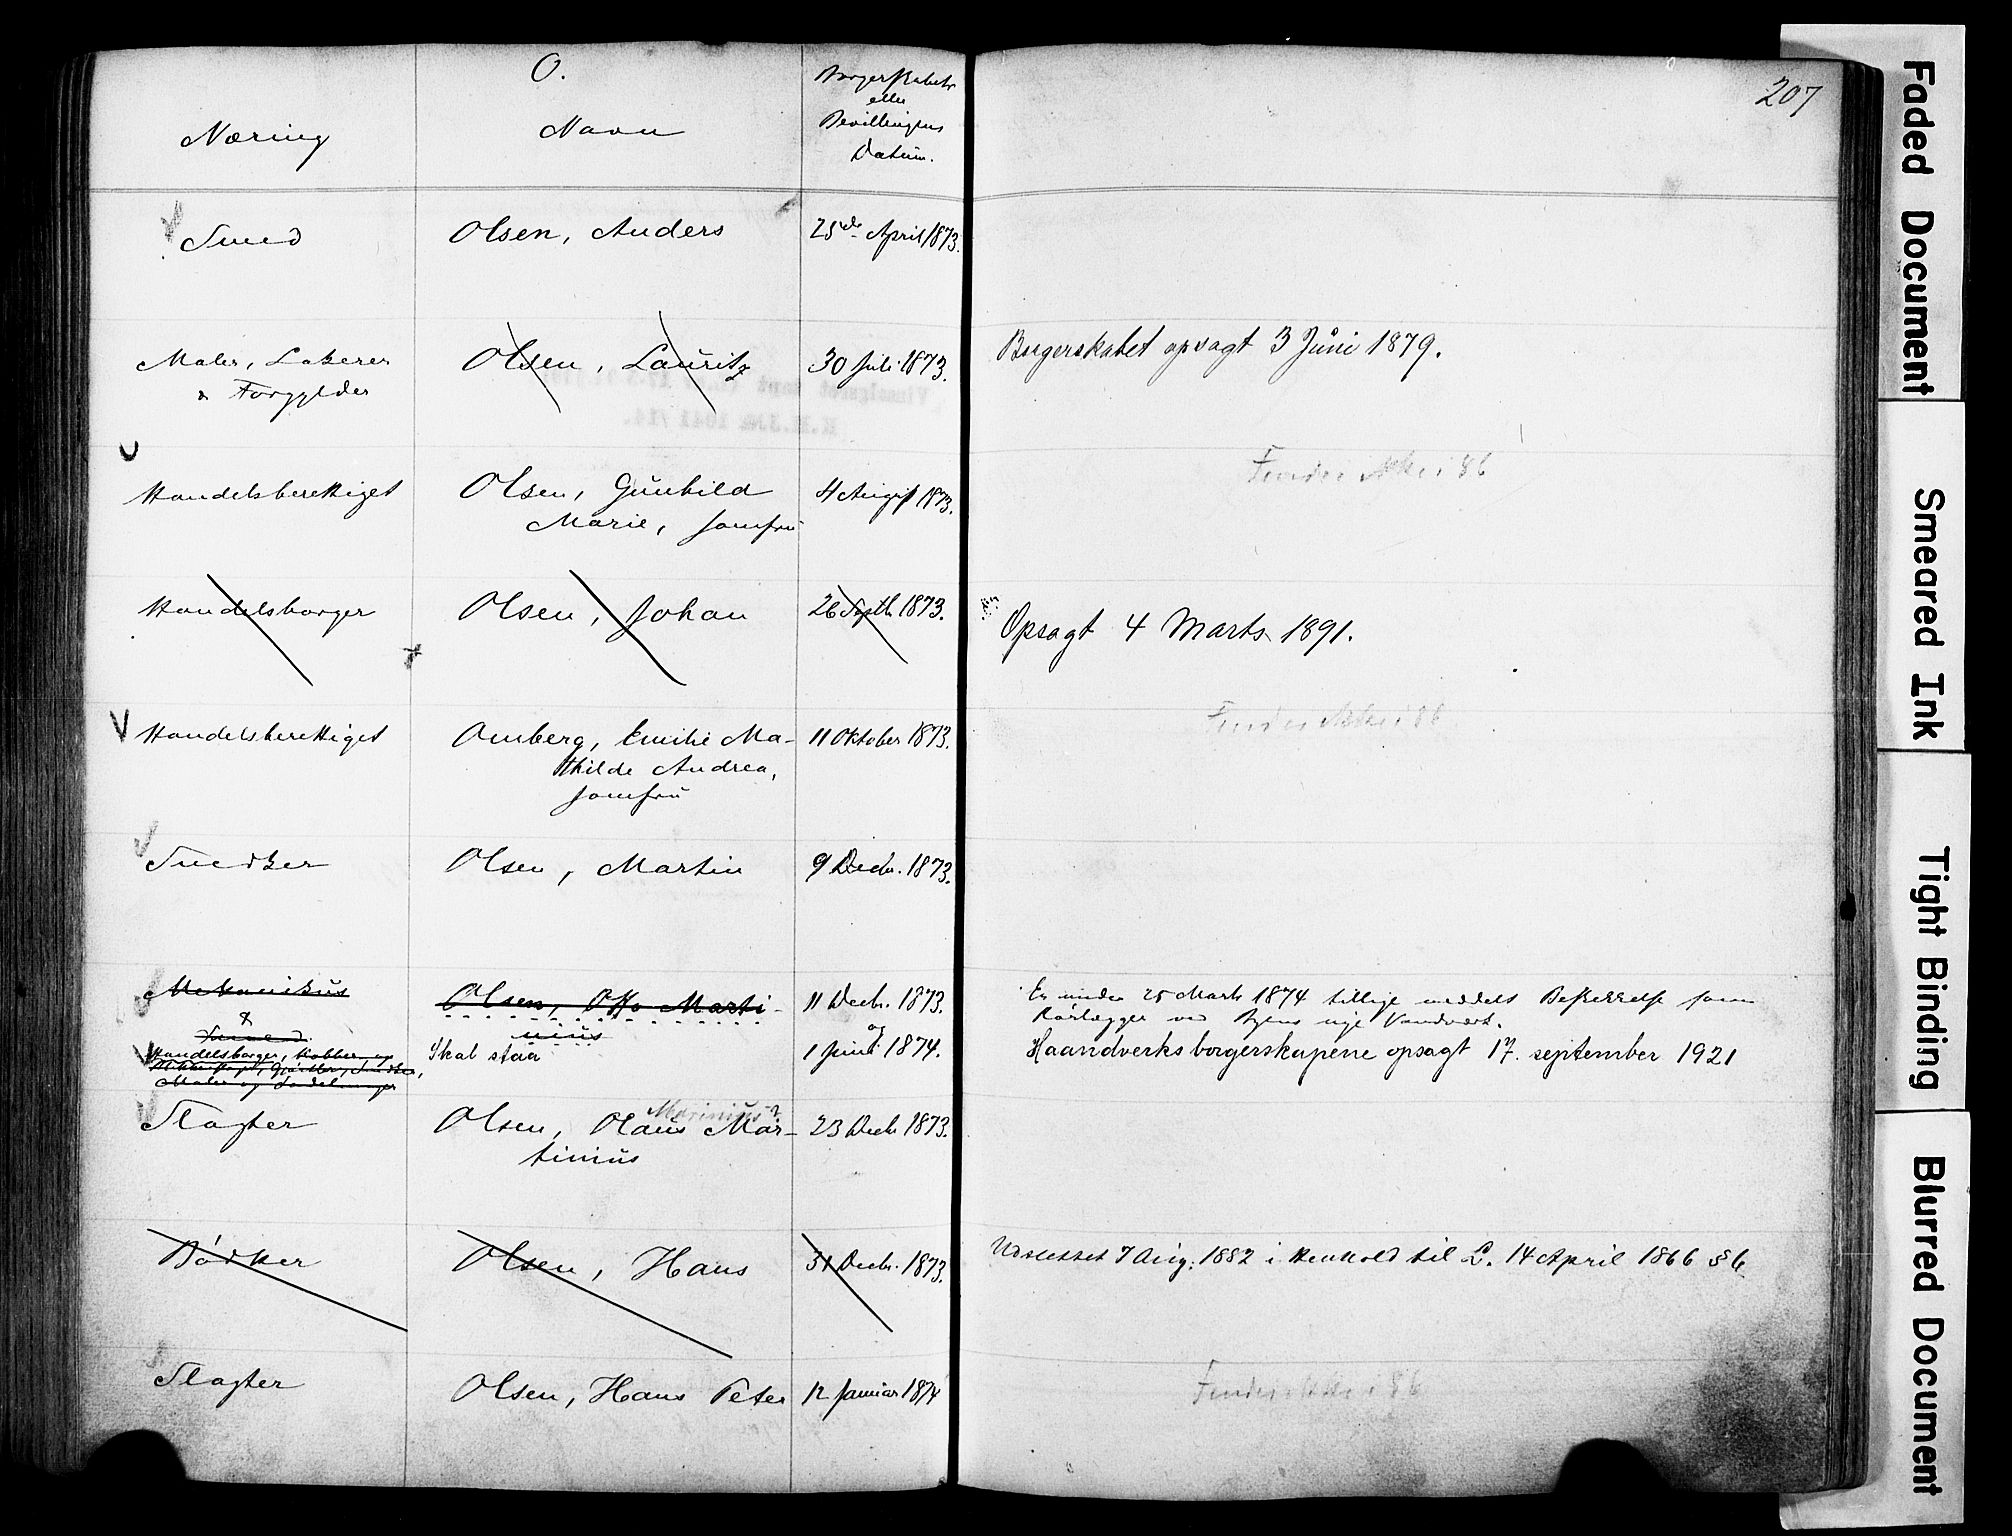 O.
207
Næring
Navn
Borgerskabets
eller
Bevillingens
Datum.
Smed
Olsen, Anders
25de April 1873.
Maler, Lakerer
& Forgylder
Olsen, Lauritz
30 Juli 1873.
Borgerskabet opsagt 3 Juni 1879.
Handelsberettiget
Olsen, Gunhild
Marie, Jomfru
4 August 1873.
Findes ikke i 86
Handelsborger
Olsen, Johan
26 Septb. 1873.
Opsagt 4 Marts 1891.
Handelsberettiget
Omberg, Emilie Ma-
thilde Andrea,
Jomfru
11 Oktober 1873.
Findes ikke i 86
Snedker
Olsen, Martin
9 Decbr. 1873.
Mekanikus
&
Smed
Handelsborger, Kobber og
Blikkenslager, Gjørtler, Snedker,
Maler og Sadelmager
Olsen, Otto Marti-
nius
Skal staa
11 Decbr. 1873.
og
1 Juni 1874.
Er under 25 Marts 1874 tillige meddelt Beskikkelse som
Rørlægger ved Byens nye Vandværk.
Haandverksborgerskapene opsagt 17. september 1921
Slagter
Marinius?
Olsen, Olaus Mar-
tinius
23 Decbr 1873.
Bødker
Olsen, Hans
31 Decbr. 1873.
Udslettet 7 Aug. 1882 i Henhold til L. 14 April 1866 § 6
Slagter
Olsen, Hans Peter
12 Januar 1874
Findes ikke i 86
Faded Document
Smeared Ink
Tight Binding
Blurred Document